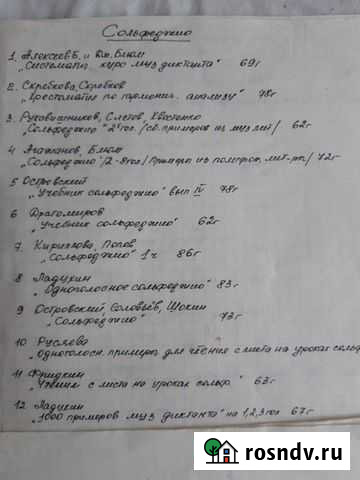 Сольфеджио
1. Алексеев Б. и Дм. Блюм
„Систематич. курс муз диктанта" 69г
2. Скребкова, Скребков
„Хрестоматия по гармонич. анализу" 78г
3. Рукавишников, Слетов, Хвостенко
„Сольфеджио" 2й гол. /св. примеров из муз лит/ 62г
4 Агажанов, Блюм
„Сольфеджио" /2-8гол/ Примеры из полифон. лит-ры/ 72г
5 Островский
„Учебник сольфеджио" вып IV 78г
6 Драгомиров
„Учебник сольфеджио" 62г
7. Кириллова, Попов
„Сольфеджио" 1ч 86г
8 Ладухин
„Одноголосное сольфеджио" 83г
9 Островский, Соловьёв, Шокин
„Сольфеджио" 73г
10 Русяева
„Одноголосн. примеры для чтения с листа на уроках сольф
11 Фридкин
„Чтение с листа на уроках сольф." 63г
12 Ладухин
„1000 примеров муз диктанта" на 1,2,3 гол 67г
rosndv.ru